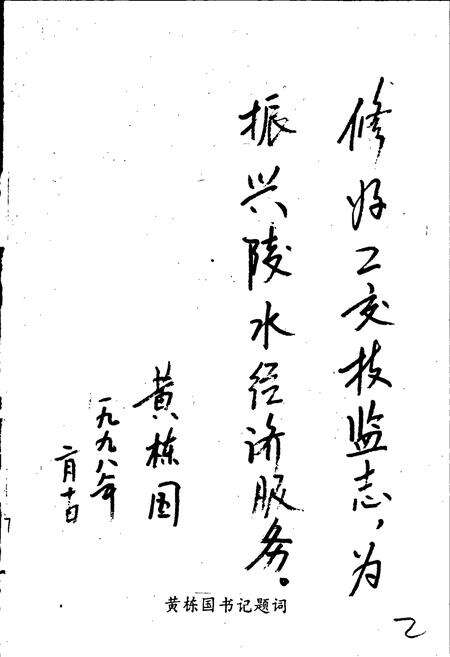 修好工交技监志，为
振兴陵水经济服务。
黄栋国
一九九八年
二月十日
黄栋国书记题词